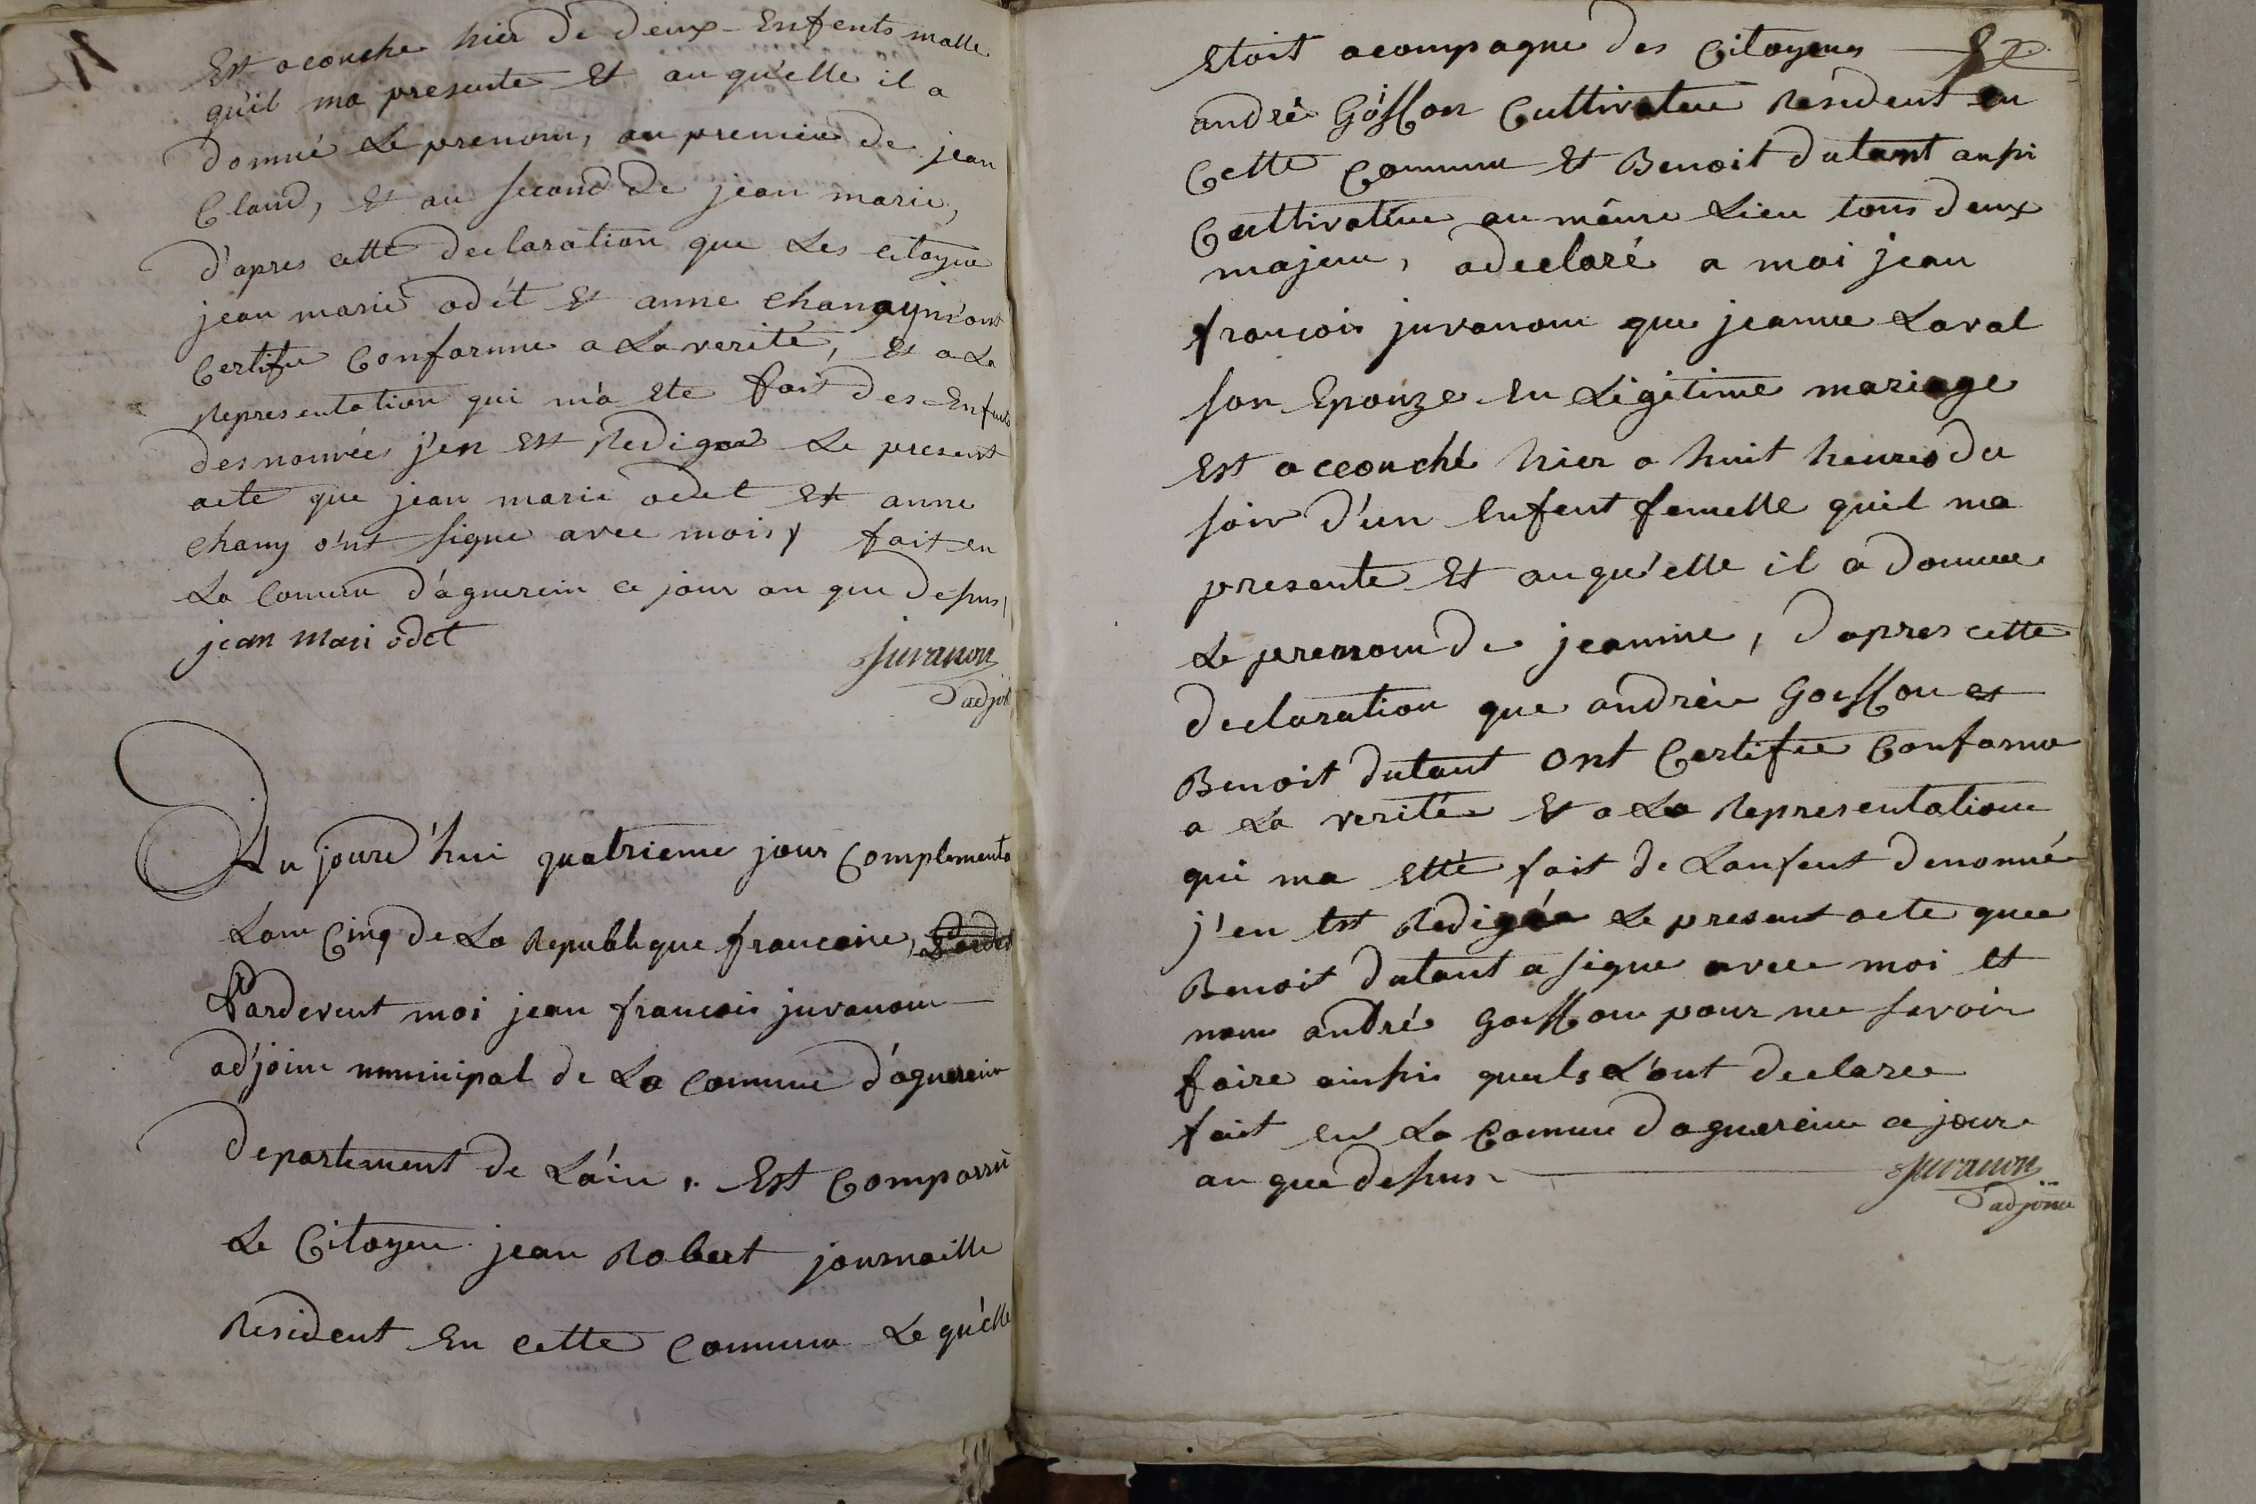 Est acouche hier de deux Enfents malle
qu'il ma presente Et au qu'elle il a
donné Le prenom, au premier de jean
Claud, Et au second de jean marie,
d'apres cette declaration que Les citoyen
jean marie odet Et anne chanay m'ont
Certifie Conforme a La verité, Et a La
Representation qui m'a Ete fait des Enfents
desnomées j'en Est Redigea Le present
acte que jean marie odet Et anne
chany o'nt signe avec mois, fait en
La Comune d'aguerein ce jour an que desus,
jean Mari odet
Juvanon
adjoi
Au jourd'hui quatrieme jour Complementa
Lan Cinq de La Republique francoise,
Pardevent moi jean francois juvanom
ad'joint municipal de La Comune d'aguerein
departement de L'ain, Est Comparru
Le Citoyen jean Robert journaille
Resident En cette Comune Le qu'elle
Etoit acompagne des Citoyens
andré Gosson Cultivateur Resident En
Cette Comune Et Benoit dutant ausi
Cultivateur au même Lieu tous deux
majeur, a declaré a moi jean
francois juvanom que jeanne Laval
son Epouze En Legitime mariage
Est accouché hier a huit heures du
soir d'un Enfent femelle qu'il ma
presente Et au qu'elle il a donnee
Le prenom de jeanne, d'apres cette
declaration que andrée Gosson Et
Benoit dutant Ont Certifie Conforme
a La verité Et a La Representation
qui ma Etté fait de Lenfent denomé
j'en Est Redigéa Le present acte que
Benoit dutant a signe avec moi Et
nom andré Gosson pour ne savoir
faire ainsi quils L'ont declaree
fait En La Comune daguereine ce jour
an que desus
Juvanon
adjoint